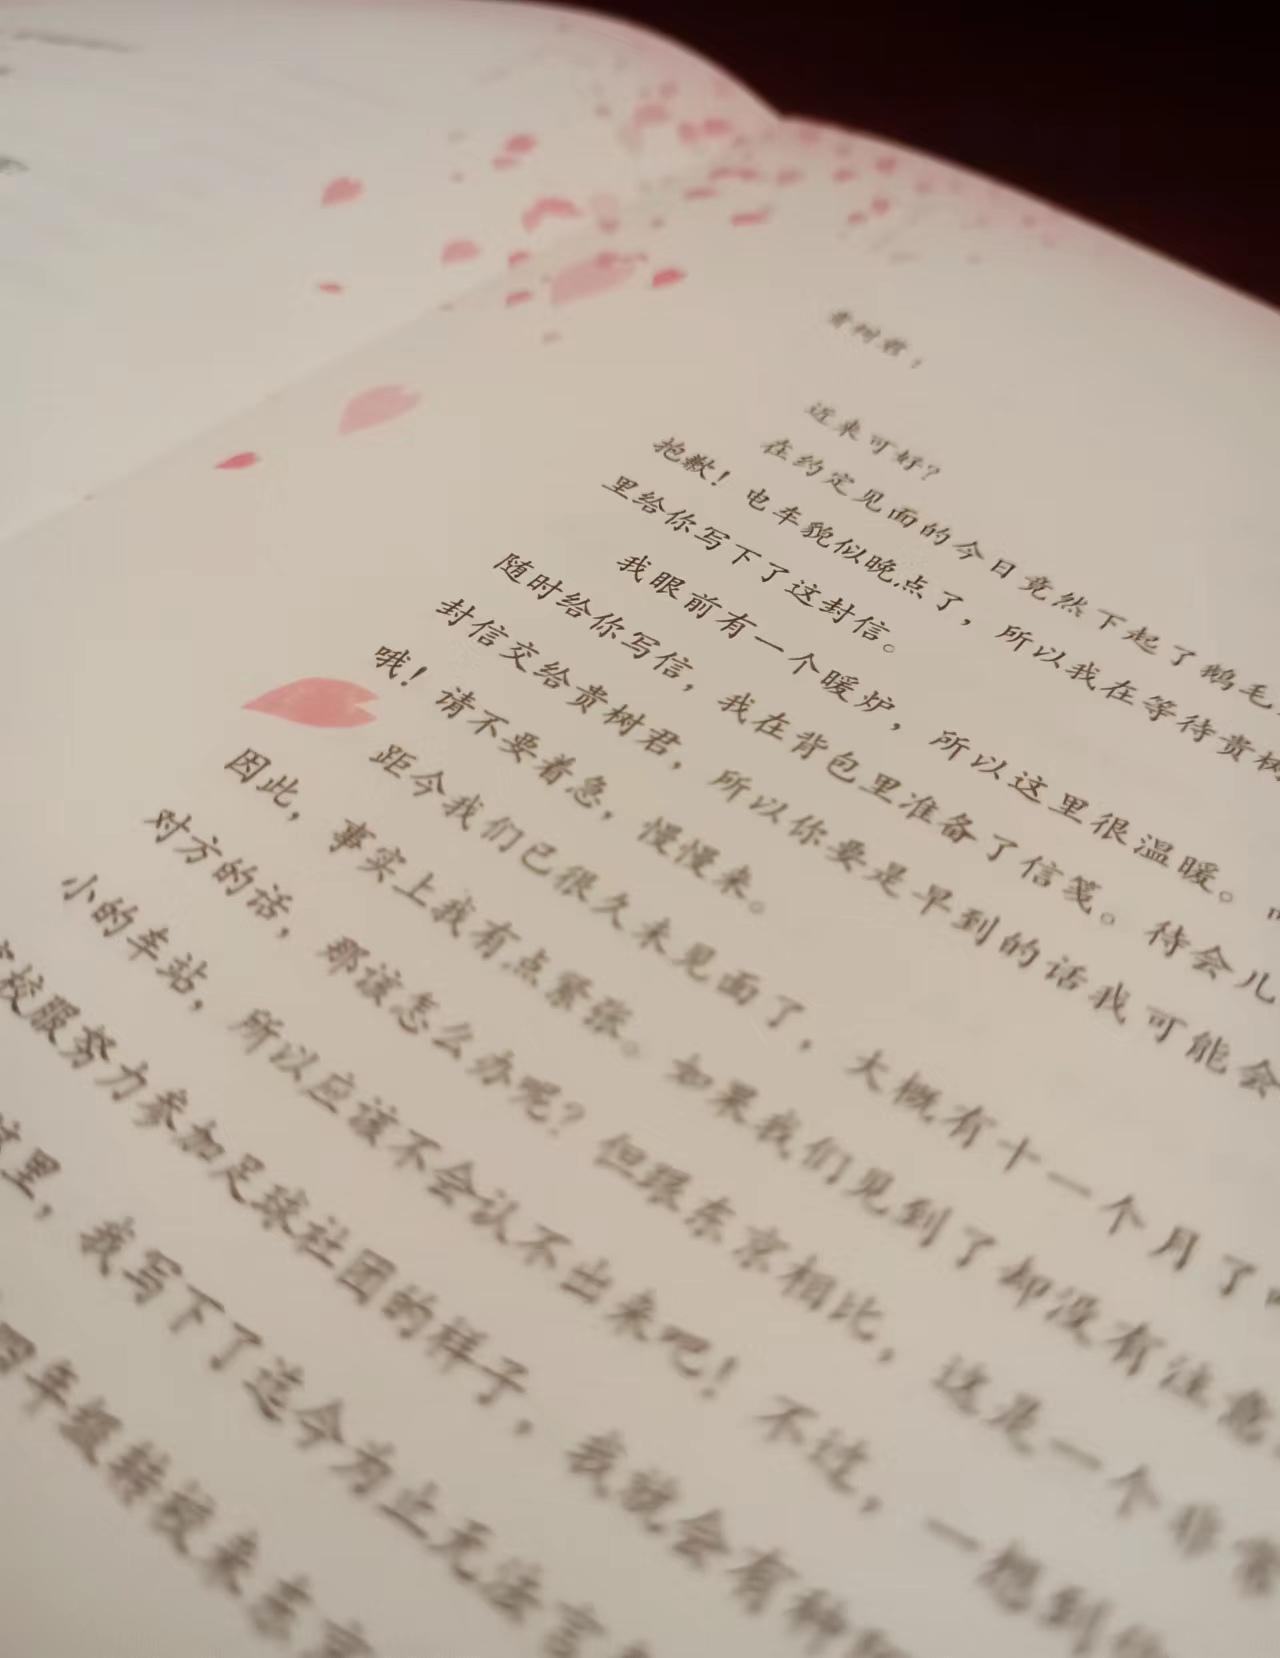 贵树君：
近来可好？
在约定见面的今日竟然下起了鹅毛
抱歉！电车貌似晚点了，所以我在等待贵树
里给你写下了这封信。
我眼前有一个暖炉，所以这里很温暖。
随时给你写信，我在背包里准备了信笺。待会儿
封信交给贵树君，所以你要是早到的话我可能会
哦！请不要着急，慢慢来。
距今我们已很久未见面了，大概有十一个月了
因此，事实上我有点紧张。如果我们见到了却没有注意
对方的话，那该怎么办呢？但跟东京相比，这是一个非常
小的车站，所以应该不会认不出来吧！不过，一想到
校服努力参加足球社团的样子，我就会有种
这里，我写下了迄今为止无法言
四年级转校来东京